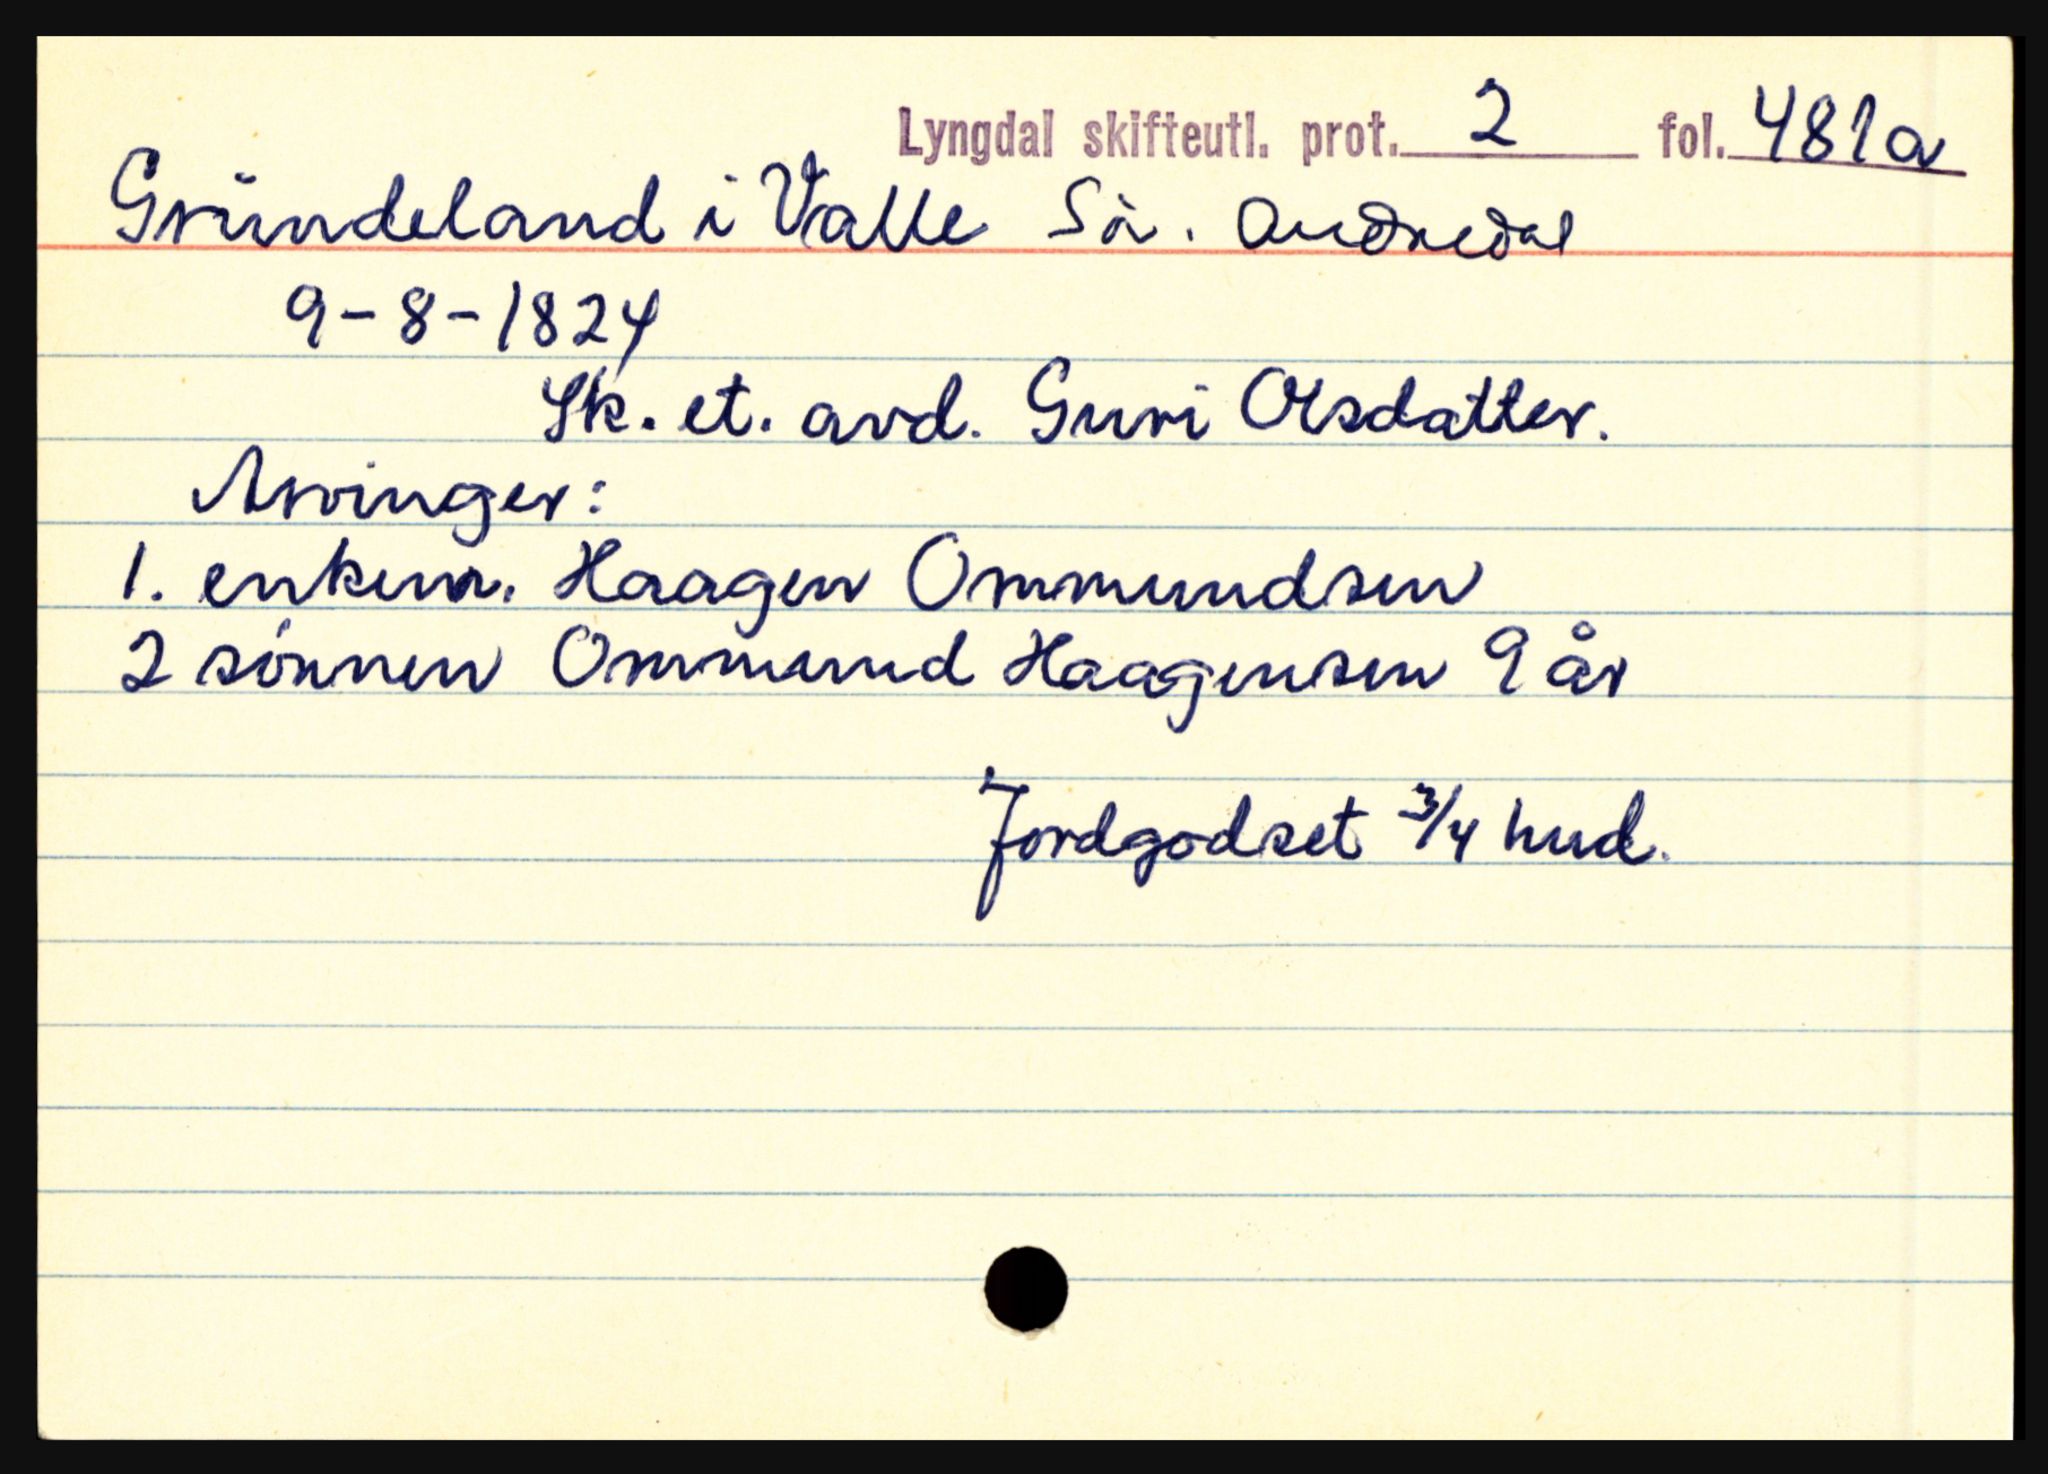 Lyngdal skifteutl. prot. 2 fol. 481a
Gründeland i Valle Sör. Audnedal
9-8-1824
Sk. et. avd. Guri Olsdatter.
Arvinger:
1. enkem. Haagen Ommundsen
2 sönnen Ommund Haagensen 9 år
Jordgodset 3/4 hud.